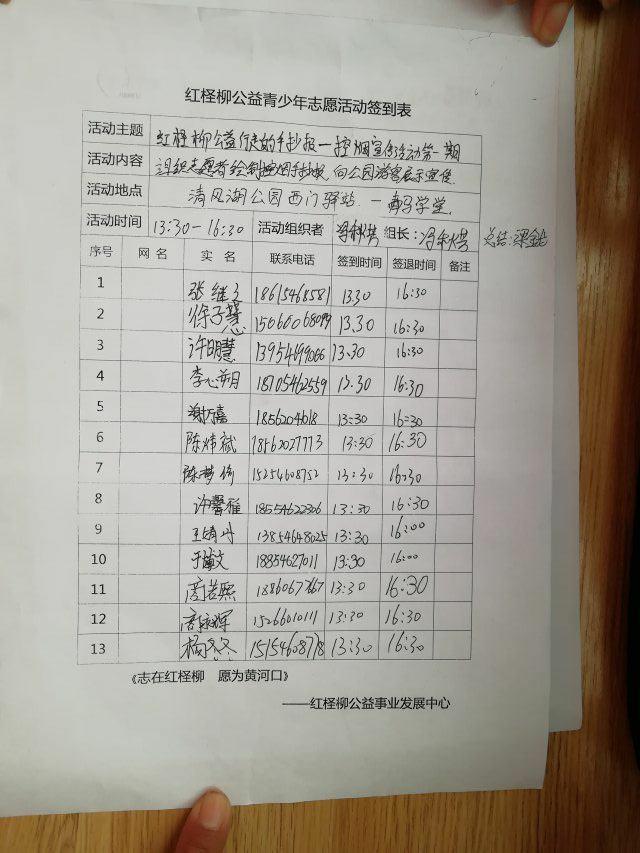 红柽柳公益青少年志愿活动签到表
活动主题 红柽柳公益行走的手抄报—控烟宣传活动第一期
活动内容 组织志愿者绘制控烟手抄报,向公园游客展示宣传
活动地点 清风湖公园西门驿站 — 犇马学堂
活动时间 13:30-16:30 活动组织者 组长: 总结:梁
序号 网 名 实 名 联系电话 签到时间 签退时间 备注
1 张继 18615468581 13.30 16:30
2 徐子慧 15066068099 13.30 16:30
3 许明慧 13954199066 13.30 16:30
4 李心朔 18705462559 13.30 16:30
5 谢 13:30 16:30
6 陈炜斌 13:30 16:30
7 陈梦 15254608752 13:30 16:30
8 许馨雅 18554622306 13:30 16:30
9 王婧丹 13854648025 13:30 16:00
10 于敏文 18854627011 13:30 16:00
11 商若熙 13:30 16:30
12 商永辉 13:30 16:30
13 杨冬冬 13:30 16:30
《志在红柽柳 愿为黄河口》
——红柽柳公益事业发展中心